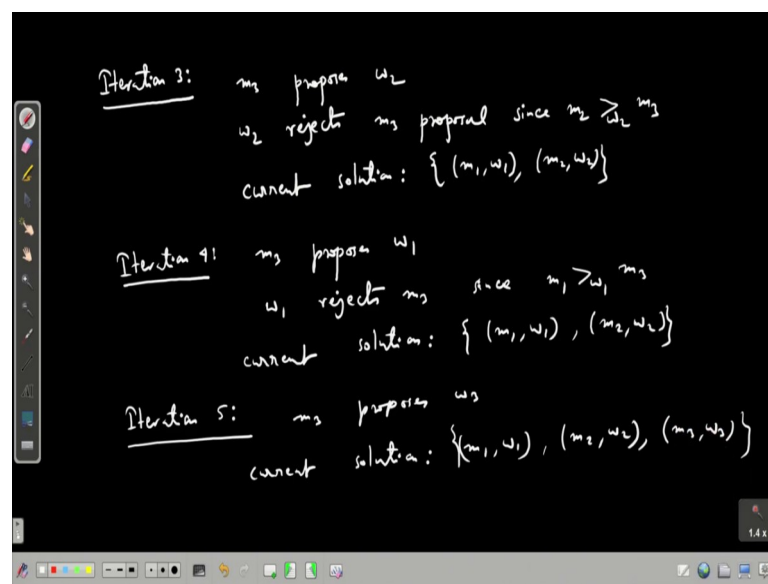 Iteration 3: m₃ proposes w₂
w₂ rejects m₃ proposal since m₂ >_w₂ m₃
current solution: { (m₁, w₁), (m₂, w₂) }
Iteration 4: m₃ proposes w₁
w₁ rejects m₃ since m₁ >_w₁ m₃
current solution: { (m₁, w₁), (m₂, w₂) }
Iteration 5: m₃ proposes w₃
current solution: { (m₁, w₁), (m₂, w₂), (m₃, w₃) }
1.4 x